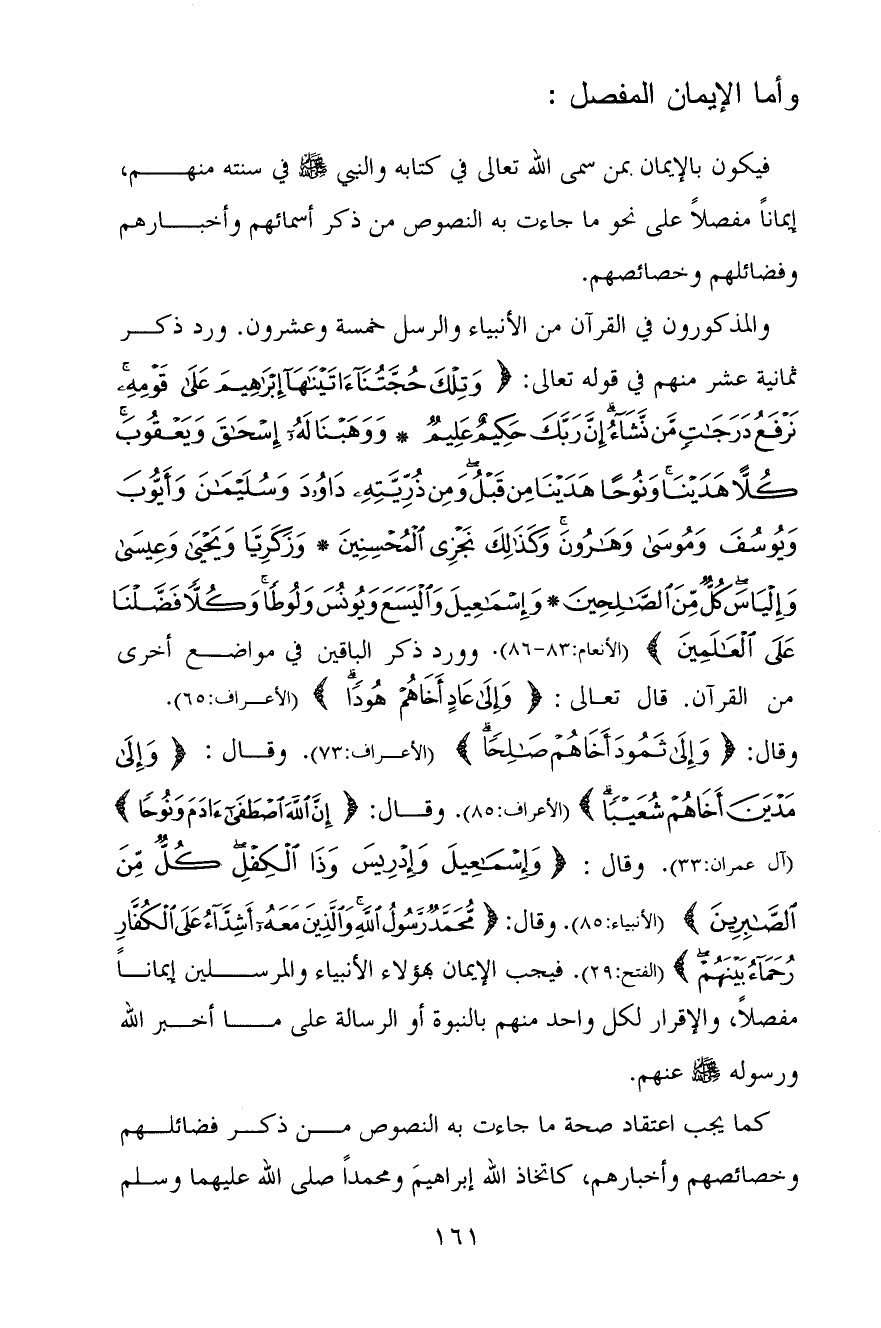 وأما الإيمان المفصل :
فيكون بالإيمان بمن سمى الله تعالى في كتابه والنبي ﷺ في سنته منهــــم،
إيماناً مفصلاً على نحو ما جاءت به النصوص من ذكر أسمائهم وأخبــــارهم
وفضائلهم وخصائصهم.
والمذكورون في القرآن من الأنبياء والرسل خمسة وعشرون. ورد ذكــر
ثمانية عشر منهم في قوله تعالى: ﴿ وَتِلْكَ حُجَّتُنَآ ءَاتَيْنَٰهَآ إِبْرَٰهِيمَ عَلَىٰ قَوْمِهِۦۚ
نَرْفَعُ دَرَجَٰتٍ مَّن نَّشَآءُۗ إِنَّ رَبَّكَ حَكِيمٌ عَلِيمٌ * وَوَهَبْنَا لَهُۥٓ إِسْحَٰقَ وَيَعْقُوبَۚ
كُلًّا هَدَيْنَاۚ وَنُوحًا هَدَيْنَا مِن قَبْلُۖ وَمِن ذُرِّيَّتِهِۦ دَاوُۥدَ وَسُلَيْمَٰنَ وَأَيُّوبَ
وَيُوسُفَ وَمُوسَىٰ وَهَٰرُونَۚ وَكَذَٰلِكَ نَجْزِى ٱلْمُحْسِنِينَ * وَزَكَرِيَّا وَيَحْيَىٰ وَعِيسَىٰ
وَإِلْيَاسَۖ كُلٌّ مِّنَ ٱلصَّٰلِحِينَ * وَإِسْمَٰعِيلَ وَٱلْيَسَعَ وَيُونُسَ وَلُوطًاۚ وَكُلًّا فَضَّلْنَا
عَلَى ٱلْعَٰلَمِينَ ﴾ (الأنعام:٨٣-٨٦). وورد ذكر الباقين في مواضــع أخرى
من القرآن. قال تعـالى : ﴿ وَإِلَىٰ عَادٍ أَخَاهُمْ هُودًاۗ ﴾ (الأعـــراف:٦٥).
وقال: ﴿ وَإِلَىٰ ثَمُودَ أَخَاهُمْ صَٰلِحًاۗ ﴾ (الأعـــراف:٧٣). وقــال : ﴿ وَإِلَىٰ
مَدْيَنَ أَخَاهُمْ شُعَيْبًاۗ ﴾ (الأعراف:٨٥). وقــال: ﴿ إِنَّ ٱللَّهَ ٱصْطَفَىٰٓ ءَادَمَ وَنُوحًا ﴾
(آل عمران:٣٣). وقال : ﴿ وَإِسْمَٰعِيلَ وَإِدْرِيسَ وَذَا ٱلْكِفْلِۖ كُلٌّ مِّنَ
ٱلصَّٰبِرِينَ ﴾ (الأنبياء:٨٥). وقال: ﴿ مُّحَمَّدٌ رَّسُولُ ٱللَّهِۚ وَٱلَّذِينَ مَعَهُۥٓ أَشِدَّآءُ عَلَى ٱلْكُفَّارِ
رُحَمَآءُ بَيْنَهُمْۖ ﴾ (الفتح:٢٩). فيجب الإيمان بهؤلاء الأنبياء والمرســـلين إيمانــاً
مفصلاً، والإقرار لكل واحد منهم بالنبوة أو الرسالة على مـــا أخـــبر الله
ورسوله ﷺ عنهم.
كما يجب اعتقاد صحة ما جاءت به النصوص مـــن ذكـــر فضائلـــهم
وخصائصهم وأخبارهم، كاتخاذ الله إبراهيمَ ومحمداً صلى الله عليهما وســلم
١٦١